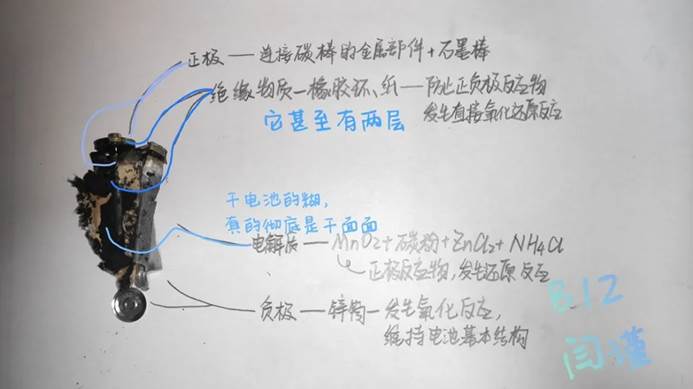 正极——连接碳棒的金属部件+石墨棒
绝缘物质—橡胶环、纸——防止正负极反应物
发生直接氧化还原反应
它甚至有两层
干电池的糊,
真的彻底是干面面
电解质——MnO2+石碳粉+ZnCl2+NH4Cl
正极反应物,发生还原反应
负极——锌筒—发生氧化反应,
维持电池基本结构
B12
闫瑾